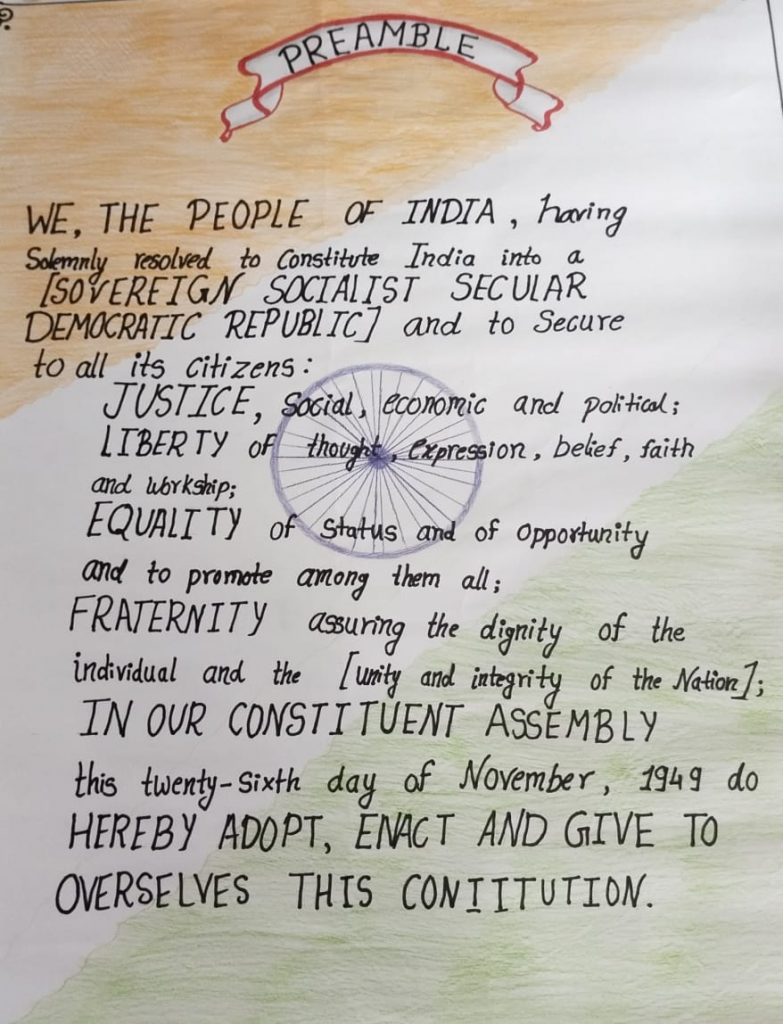 PREAMBLE
WE, THE PEOPLE OF INDIA, having
Solemnly resolved to Constitute India into a
[SOVEREIGN SOCIALIST SECULAR
DEMOCRATIC REPUBLIC] and to Secure
to all its citizens:
JUSTICE, Social, economic and political;
LIBERTY of thought, expression, belief, faith
and workship;
EQUALITY of Status and of opportunity
and to promote among them all;
FRATERNITY assuring the dignity of the
individual and the [unity and integrity of the Nation];
IN OUR CONSTITUENT ASSEMBLY
this twenty-Sixth day of November, 1949 do
HEREBY ADOPT, ENACT AND GIVE TO
OVERSELVES THIS CONTITUTION.